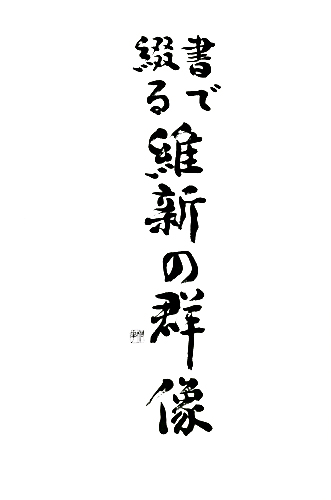 書で
綴る
維新の群像